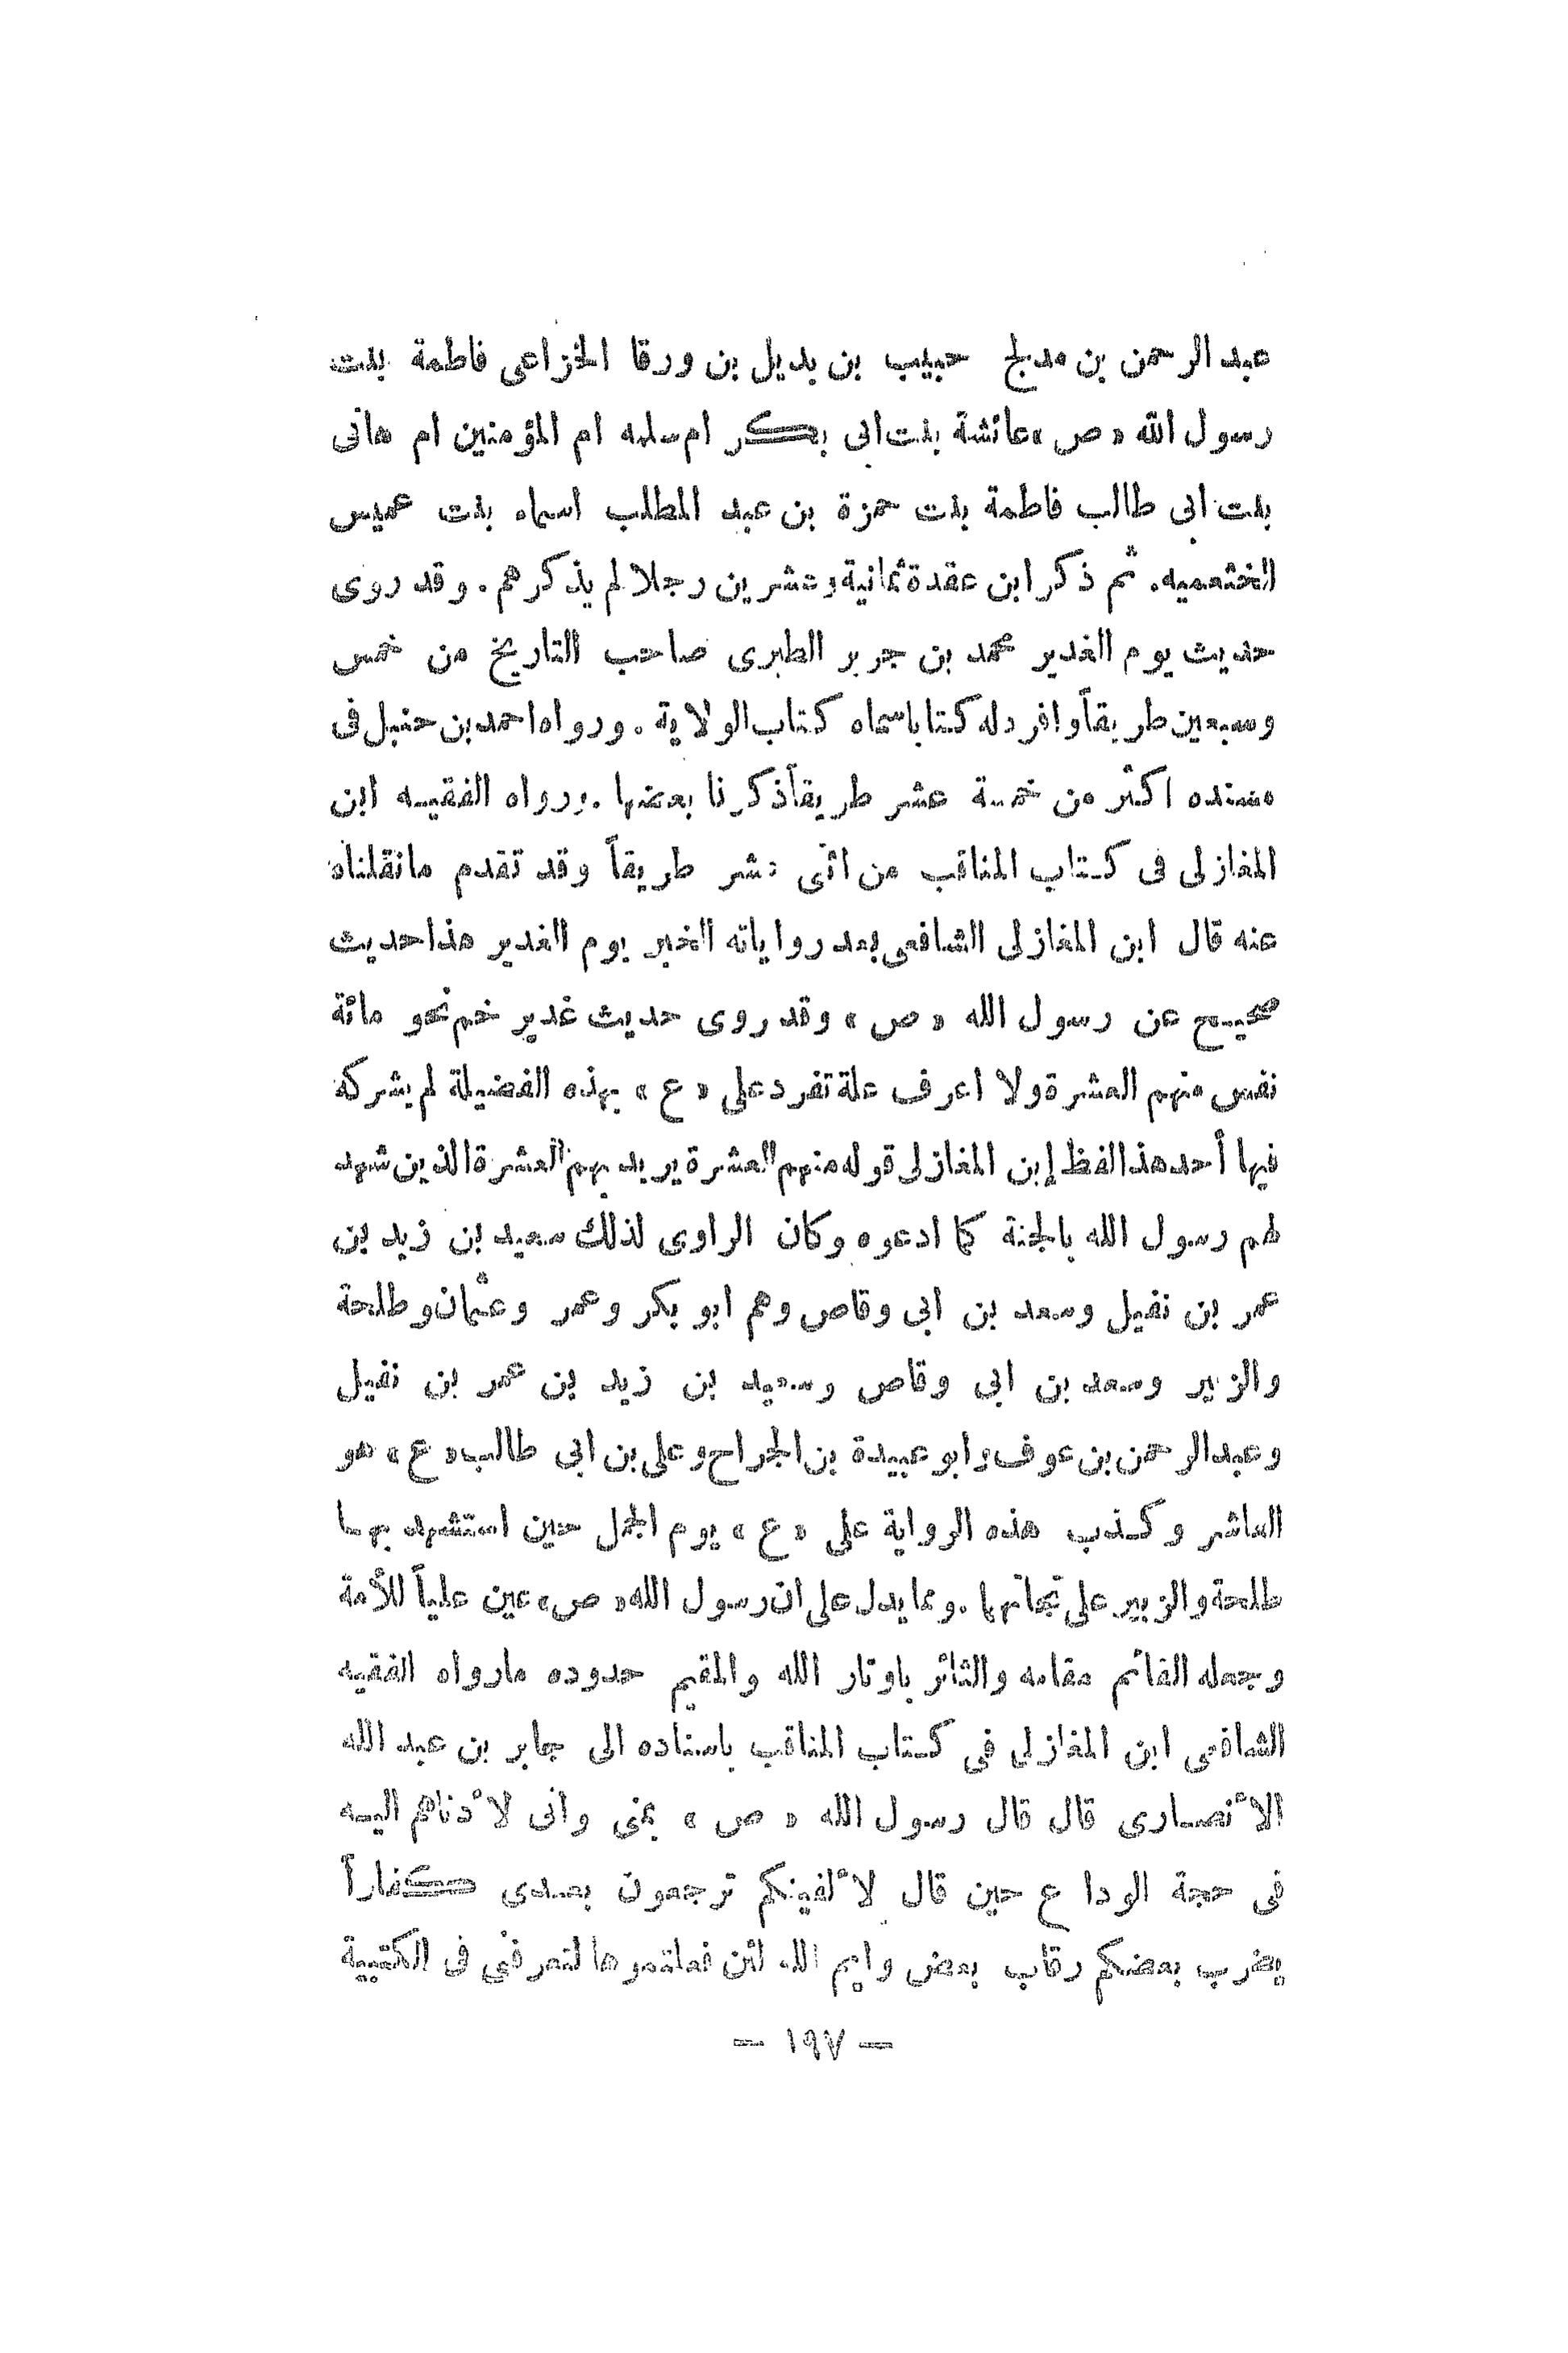 عبد الرحمن بن مدلج حبيب بن بديل بن ورقا الخزاعى فاطمة بنت
رسول الله « ص » عائشة بنت ابى بكر ام سلمه ام المؤمنين ام هانى
بنت ابى طالب فاطمة بنت حمزة بن عبد المطلب اسماء بنت عميس
الخثعميه . ثم ذكر ابن عقدة ثمانية وعشرين رجلا لم يذكرهم . وقد روى
حديث يوم الغدير محمد بن جرير الطبرى صاحب التاريخ من خمس
وسبعين طريقاً وافرد له كتابا سماه كتاب الولاية . ورواه احمد بن حنبل فى
مسنده اكثر من خمسة عشر طريقاً ذكرنا بعضها . ورواه الفقيه ابن
المغازلى فى كتاب المناقب من اثنى عشر طريقاً وقد تقدم مانقلناه
عنه قال ابن المغازلى الشافعى بعد رواياته الخبر يوم الغدير هذا حديث
صحيح عن رسول الله « ص » وقد روى حديث غدير خم نحو مائة
نفس منهم العشرة ولا اعرف علة تفرد على « ع » بهذه الفضيلة لم يشركه
فيها أحد هذا لفظ إبن المغازلى قوله منهم العشرة يريد بهم العشرة الذين شهد
لهم رسول الله بالجنة كما ادعوه وكان الراوى لذلك سعيد بن زيد بن
عمر بن نفيل وسعد بن ابى وقاص وهم ابو بكر وعمر وعثمان وطلحة
والزبير وسعد بن ابى وقاص وسعيد بن زيد بن عمر بن نفيل
وعبد الرحمن بن عوف وابو عبيدة بن الجراح وعلى بن ابى طالب « ع » هو
العاشر وكذب هذه الرواية على « ع » يوم الجمل حين استشهد بها
طلحة والزبير على نجاتهما . ومما يدل على ان رسول الله « ص » عين علياً للأمة
وجعله القائم مقامه والثائر باوتار الله والمقيم حدوده مارواه الفقيه
الشافعى ابن المغازلى فى كتاب المناقب باسناده الى جابر بن عبد الله
الأنصارى قال قال رسول الله « ص » بمنى وانى لأدناهم اليه
فى حجة الوداع حين قال لألفينكم ترجعون بعدى كفاراً
يضرب بعضكم رقاب بعض وايم الله لئن فعلتموها لتعرفنى فى الكتيبة
— ١٩٧ —